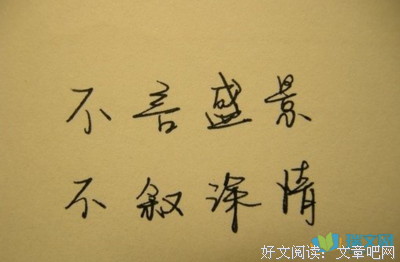 不言盛景
不叙深情
好文阅读：文章吧网